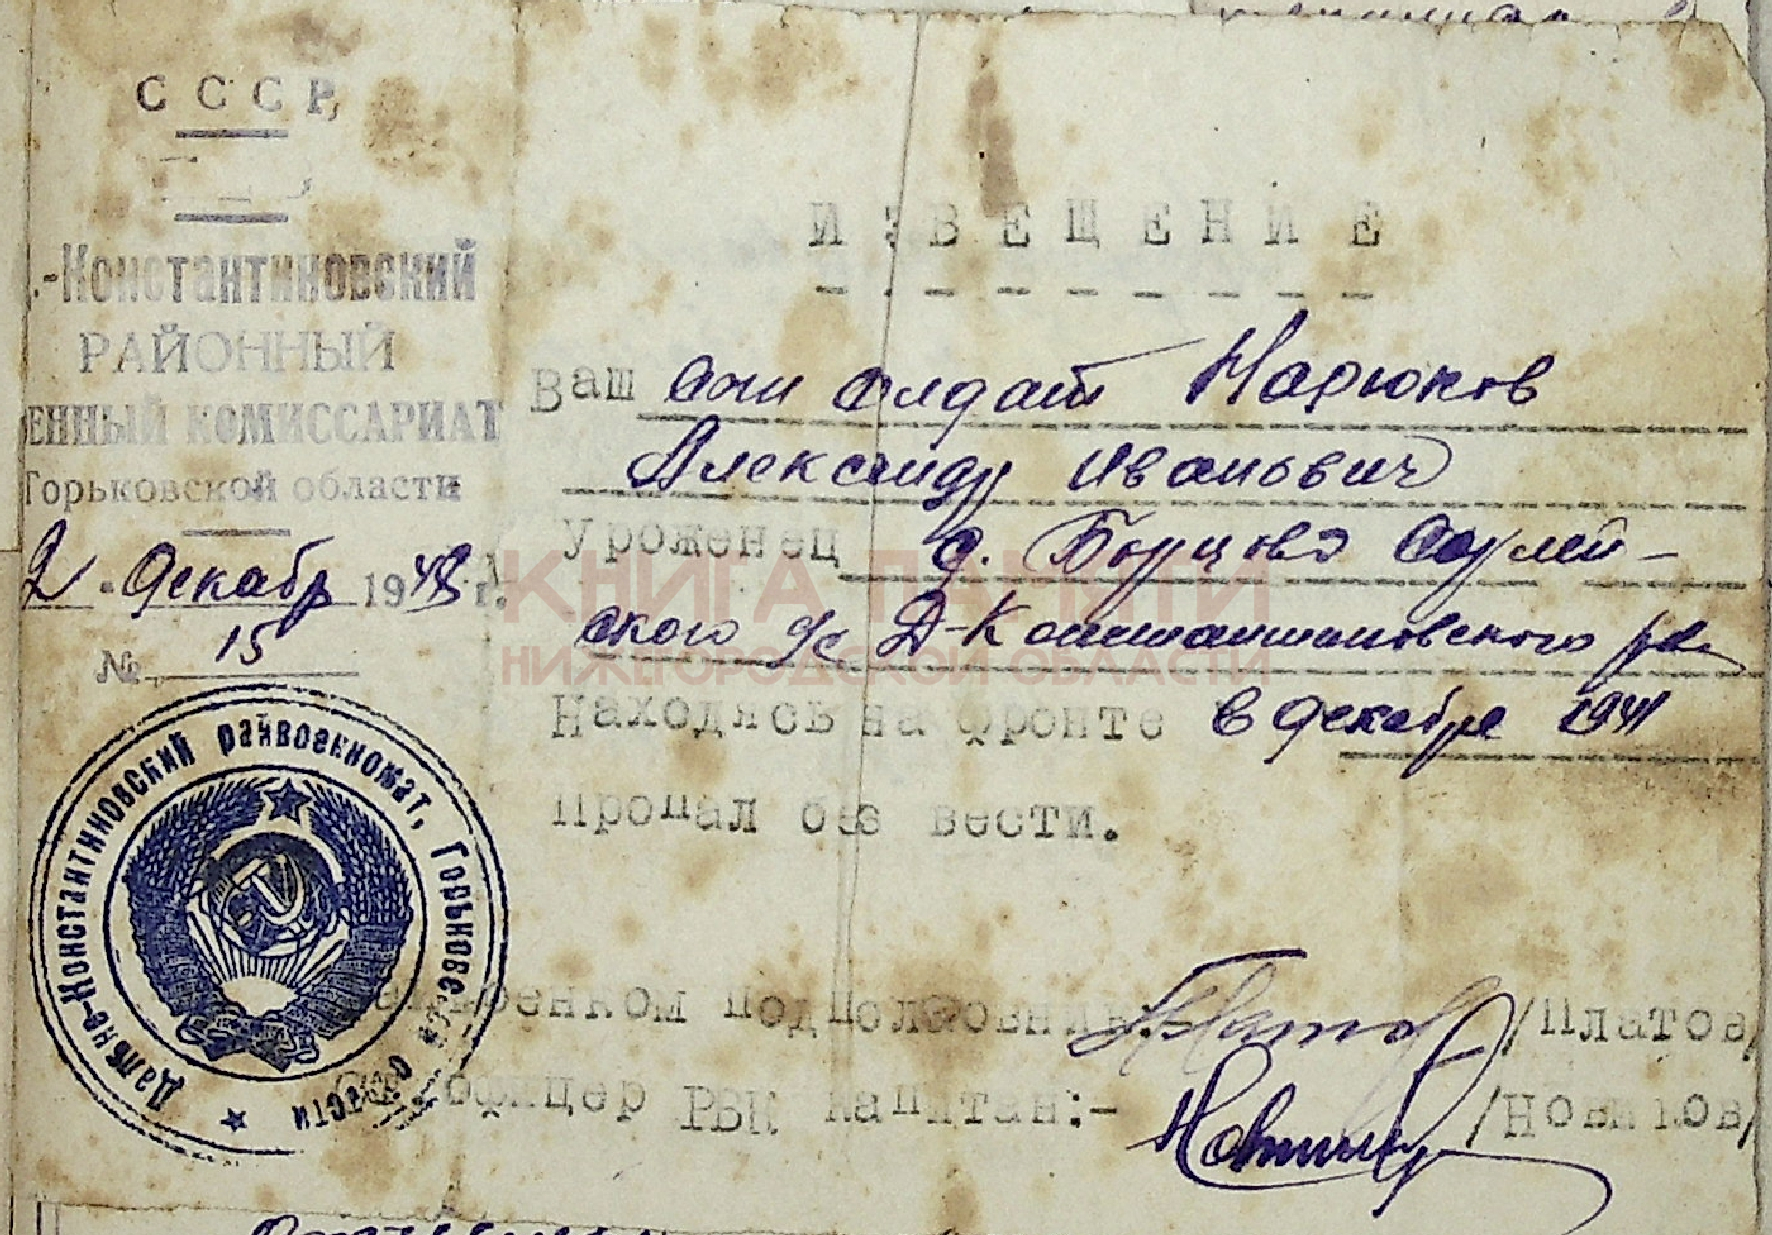 С С С Р
.-Константиновский
РАЙОННЫЙ
ЕННЫЙ КОМИССАРИАТ
Горьковской области
2 " декабр 1948 г.
№ 15
ИЗВЕЩЕНИЕ
Ваш сын солдат Нарюков
Александр Иванович
Уроженец д. Борцово Сарлей-
ского с/с Д-Константиновского р-на
Находясь на фронте в декабре 1941
Пропал без вести.
Райвоенком подполковник:- /Платов/
Ст. офицер РВК капитан:- /Новиков/
Дальне-Константиновский райвоенкомат, Горьковской области
КНИГА ПАМЯТИ
НИЖЕГОРОДСКОЙ ОБЛАСТИ